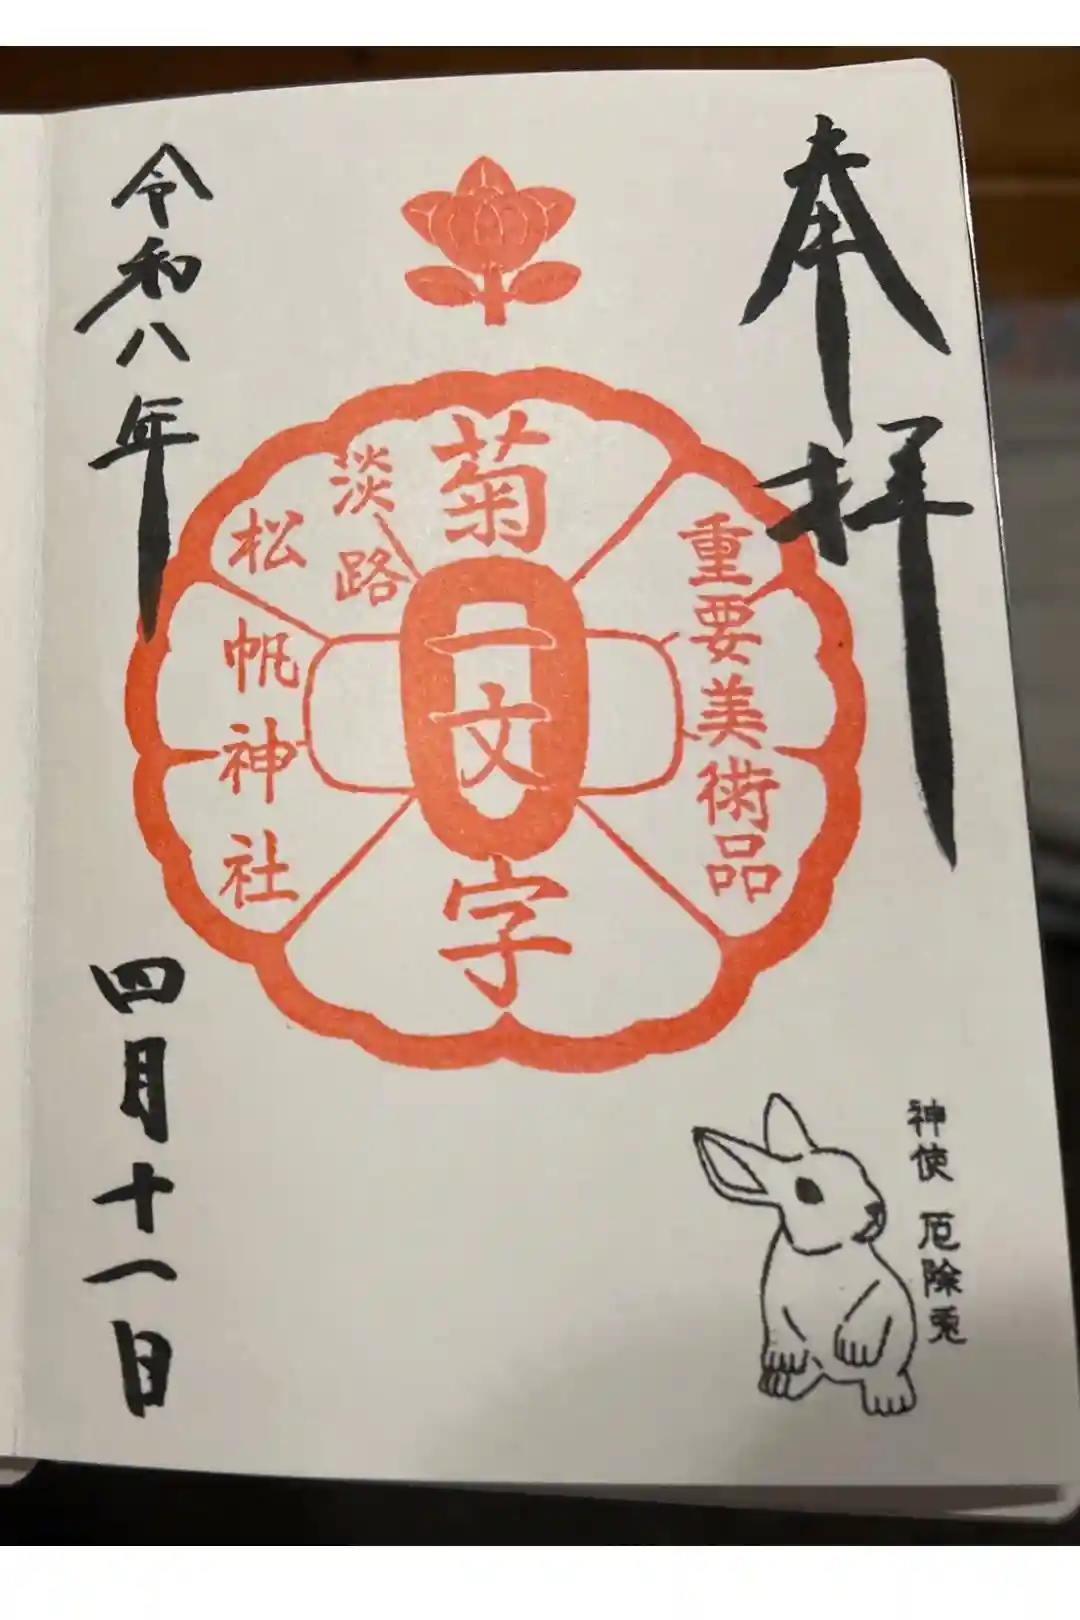 奉拝
重要美術品
菊一文字
淡路
松帆神社
令和八年
四月十一日
神使 厄除兎